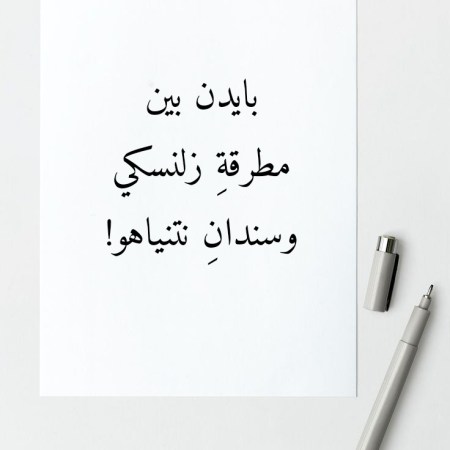 بايدن بين
مطرقةِ زلنسكي
وسندانِ نتنياهو!